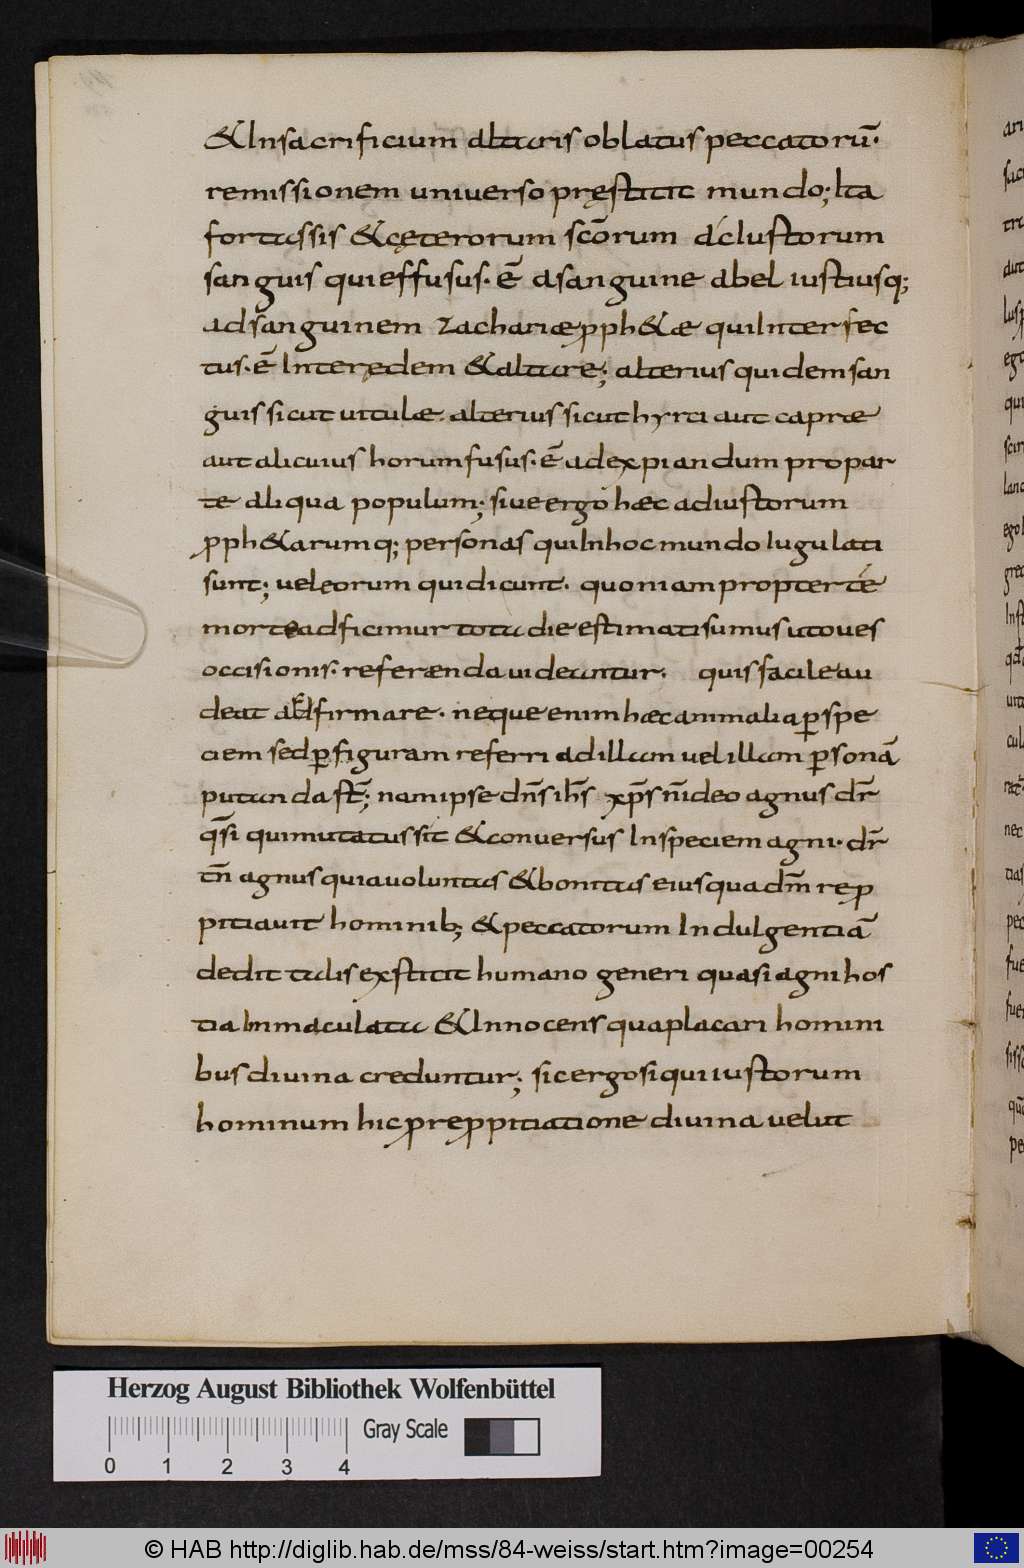 & In sacrificium altaris oblatus peccatorū·
remissionem universo pręstitit mundo; Ita
fortassis & cęterorum scōrum ac Iustorum
sanguis qui effusus· ē a sanguine abel iusti usq;
ad sanguinem zachariæ pph&æ qui Inter fec
tus· ē Inter ędem & altare; alterius quidem san
guis sicut uitulæ alterius sicut hyrci aut capræ
aut alicuius horum fusus· ē ad expiandum pro par
te aliqua populum; siue ergo hæc ad iustorum
pph&arumq; personas qui In hoc mundo Iugulati
sunt; uel eorum qui dicunt· quoniam propter té
morte adficimur tota die estimati sumus ut oues
occisionis· referænda uideuntur· quis facile au
deat adfirmare· neque enim hæc animalia ꝑ spe
ciem sed ꝑ figuram referri ad illum uel illum ꝑsonā
putanda st̄; nam ipse dn̄s ih̄s xp̄s n̄ ideo agnus dr̄
qs̄i qui mutatus sit & conversus In speciem agni· dr̄
tn̄ agnus quia uoluntas & bonitas eius qua dm̄ rep̱
pitiauit hominib; & peccatorum Indulgentiā
dedit talis exstitit humano generi quasi agni hos
tia Inmaculata & Innocens qua placari homini
bus diuina creduntur; sic ergo si qui iustorum
hominum hic p̱ rep̱pitiatione diuina velut
Herzog August Bibliothek Wolfenbüttel
Gray Scale
0 1 2 3 4
© HAB http://diglib.hab.de/mss/84-weiss/start.htm?image=00254